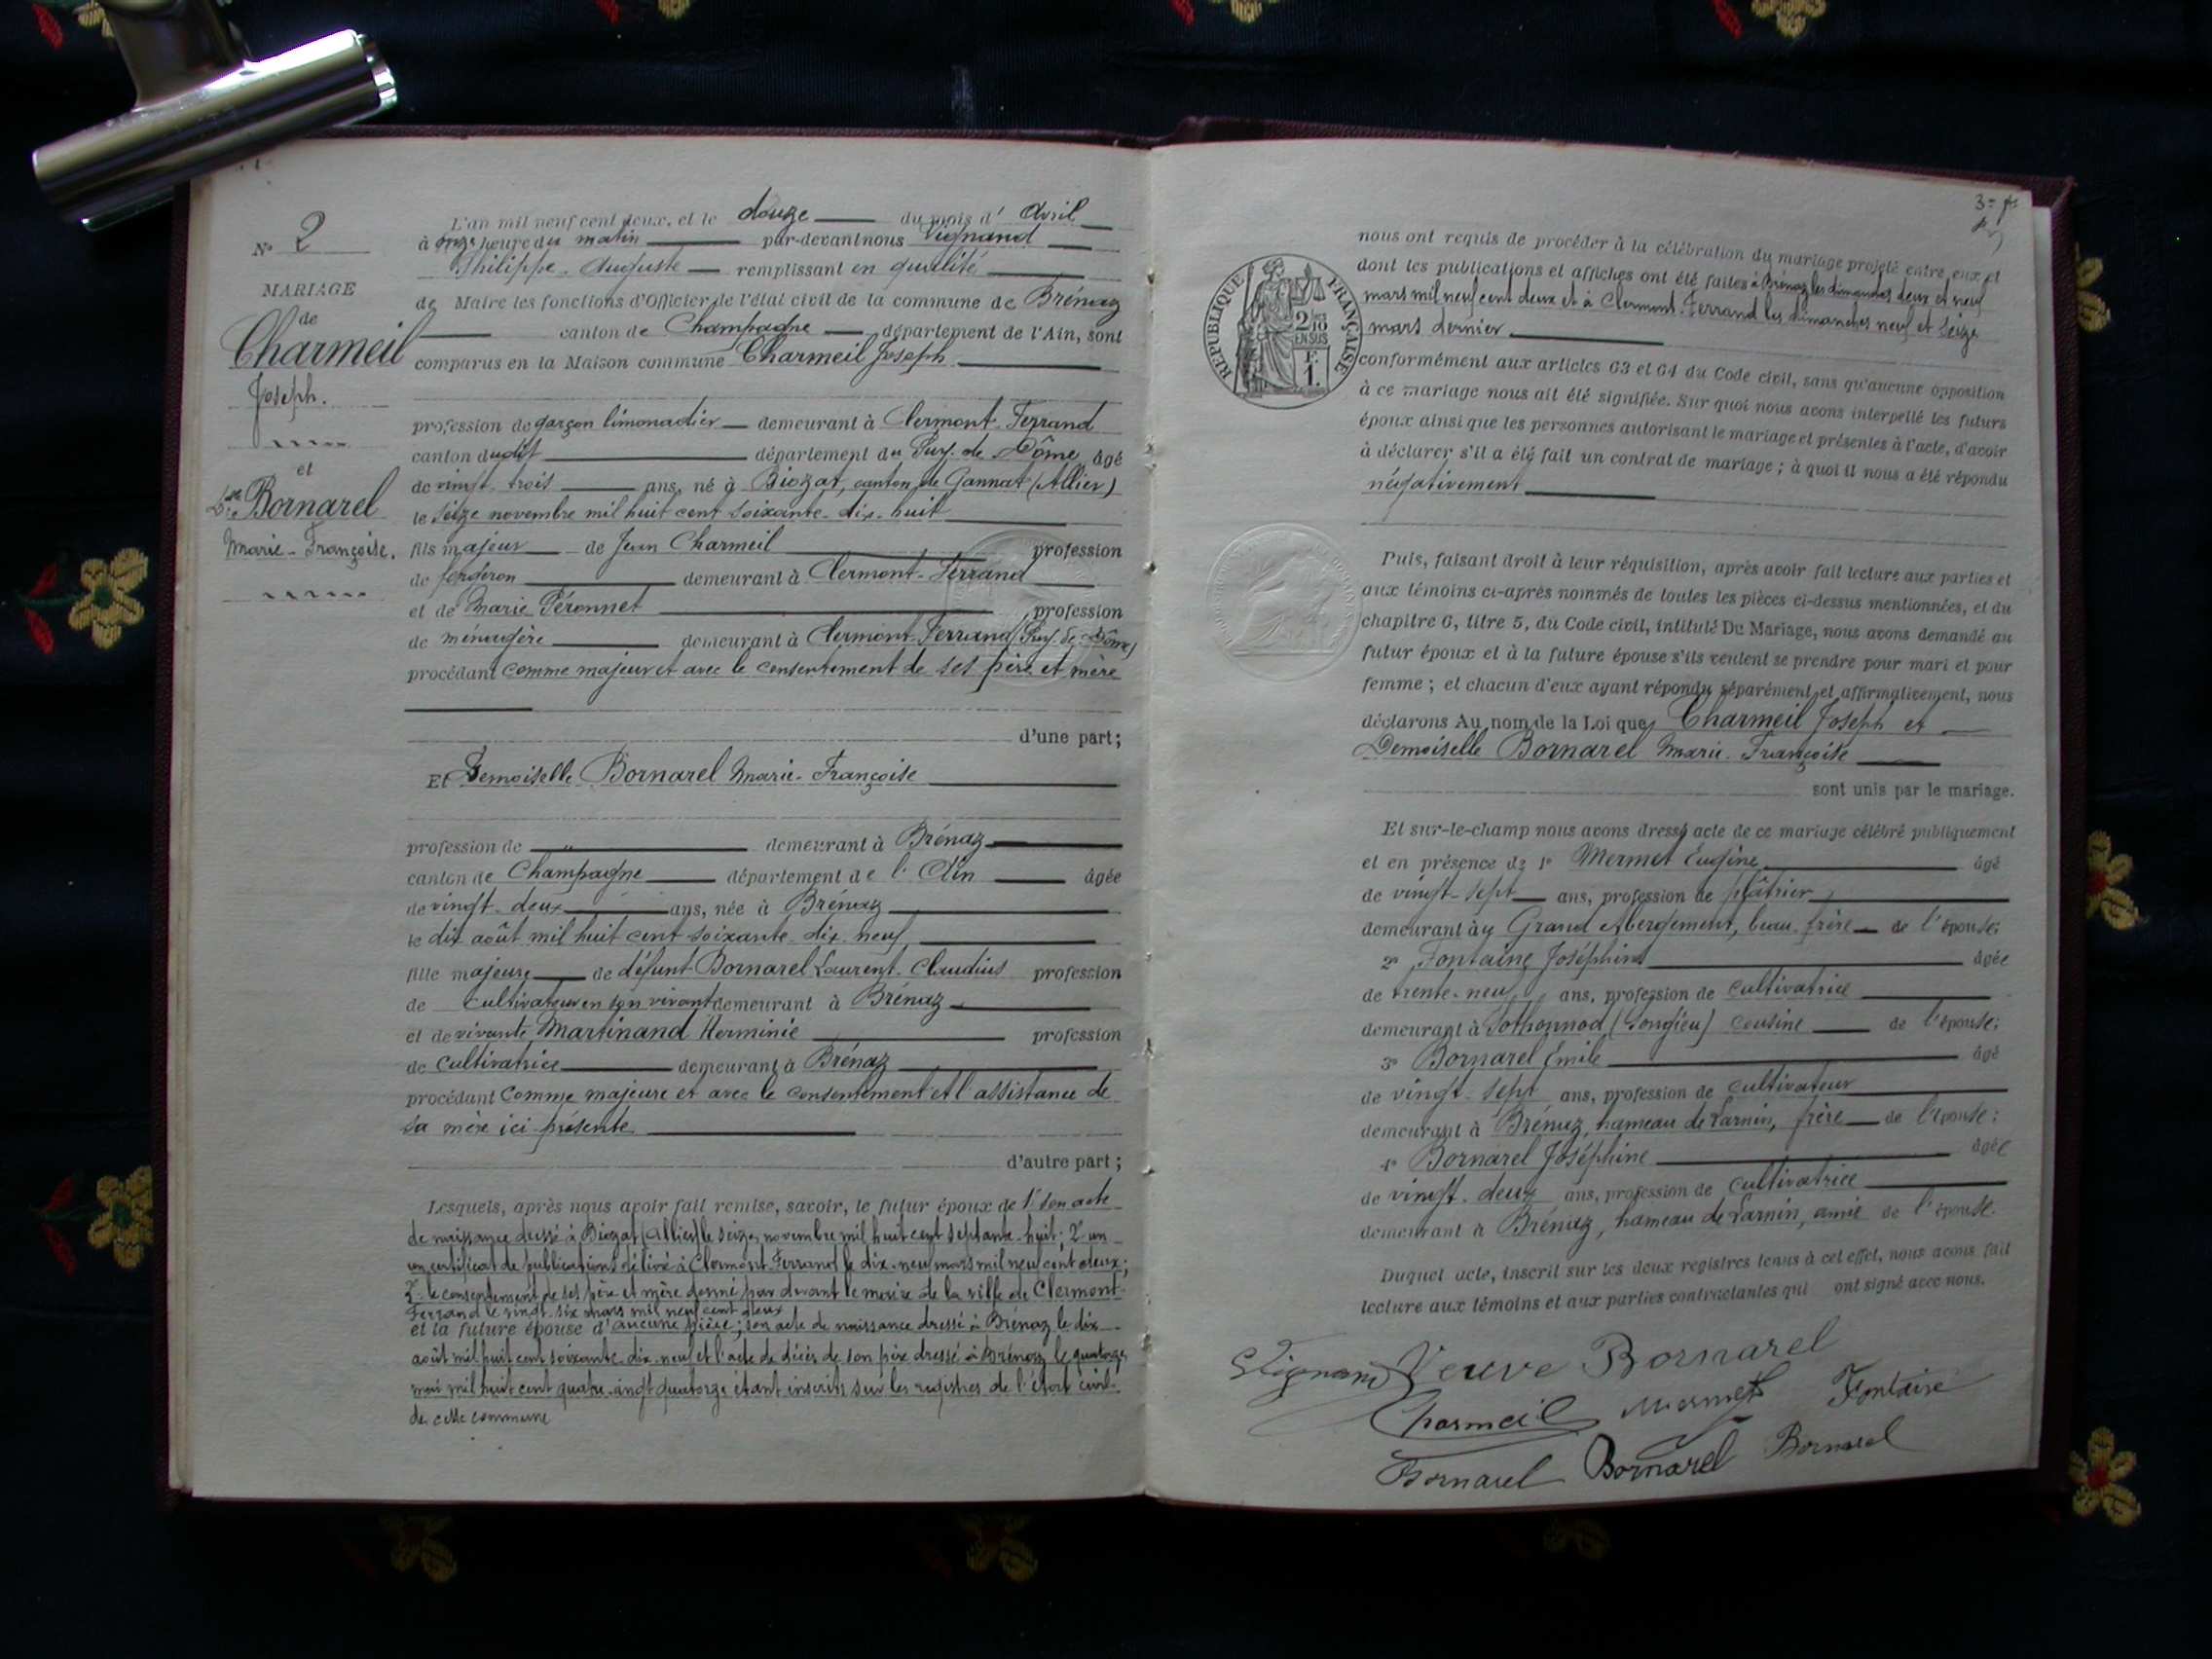 N° 2
MARIAGE
de
Charmeil
Joseph.
et
Dlle Bornarel
Marie-Françoise.
L'an mil neuf cent deux, et le douze du mois d' Avril
à onze heure du matin par-devant nous Vignand
Philippe-Auguste remplissant en qualité
de Maire les fonctions d'Officier de l'état civil de la commune de Brénaz
canton de Champagne département de l'Ain, sont
comparus en la Maison commune Charmeil Joseph
profession de garçon limonadier demeurant à Clermont-Ferrand
canton dudit département du Puy-de-Dôme âgé
de vingt-trois ans, né à Biozat, canton de Gannat (Allier)
le seize novembre mil huit cent soixante-dix-huit
fils majeur de Jean Charmeil profession
de forgeron demeurant à Clermont-Ferrand
et de Marie Péronnet profession
de ménagère demeurant à Clermont-Ferrand (Puy-de-Dôme)
procédant comme majeur et avec le consentement de ses père et mère
d'une part;
Et Demoiselle Bornarel Marie-Françoise
profession de " demeurant à Brénaz
canton de Champagne département de l'Ain âgée
de vingt-deux ans, née à Brénaz
le dix août mil huit cent soixante-dix-neuf
fille majeure de défunt Bornarel Laurent-Claudius profession
de cultivateur en son vivant demeurant à Brénaz
et de vivante Martinand Herminie profession
de cultivatrice demeurant à Brénaz
procédant comme majeure et avec le consentement et l'assistance de
sa mère ici présente
d'autre part;
Lesquels, après nous avoir fait remise, savoir, le futur époux de 1° son acte
de naissance dressé à Biozat (Allier) le seize novembre mil huit cent septante-huit; 2° un
un certificat de publications délivré à Clermont-Ferrand le dix-neuf mars mil neuf cent deux;
3° le consentement de ses père et mère donné par devant le maire de la ville de Clermont-
Ferrand le vingt-six mars mil neuf cent deux
et la future épouse d'aucune pièce; son acte de naissance dressé à Brénaz le dix
août mil huit cent soixante-dix-neuf et l'acte de décès de son père dressé à Brénaz le quatorze
mai mil huit cent quatre-vingt quatorze étant inscrits sur les registres de l'état civil
de cette commune
3
RÉPUBLIQUE FRANÇAISE
2/10
EN SUS
F.
1.
nous ont requis de procéder à la célébration du mariage projeté entre eux et
dont les publications et affiches ont été faites à Brénaz les dimanches deux et neuf
mars mil neuf cent deux et à Clermont-Ferrand les dimanches neuf et seize
mars dernier
conformément aux articles 63 et 64 du Code civil, sans qu'aucune opposition
à ce mariage nous ait été signifiée. Sur quoi nous avons interpellé les futurs
époux ainsi que les personnes autorisant le mariage et présentes à l'acte, d'avoir
à déclarer s'il a été fait un contrat de mariage; à quoi il nous a été répondu
négativement
Puis, faisant droit à leur réquisition, après avoir fait lecture aux parties et
aux témoins ci-après nommés de toutes les pièces ci-dessus mentionnées, et du
chapitre 6, titre 5, du Code civil, intitulé Du Mariage, nous avons demandé au
futur époux et à la future épouse s'ils veulent se prendre pour mari et pour
femme; et chacun d'eux ayant répondu séparément et affirmativement, nous
déclarons Au nom de la Loi que Charmeil Joseph et
Demoiselle Bornarel Marie-Françoise
sont unis par le mariage.
Et sur-le-champ nous avons dressé acte de ce mariage célébré publiquement
et en présence de 1° Mermet Eugène âgé
de vingt-sept ans, profession de plâtrier,
demeurant à y Grand Abergement, beau-frère de l'épouse;
2° Fontaine Joséphine âgée
de trente-neuf ans, profession de cultivatrice
demeurant à Sothonnod (Songieu) cousine de l'épouse;
3° Bornarel Emile âgé
de vingt-sept ans, profession de cultivateur
demeurant à Brénaz, hameau de Larnin, frère de l'épouse;
4° Bornarel Joséphine âgée
de vingt-deux ans, profession de cultivatrice
demeurant à Brénaz, hameau de Larnin, amie de l'épouse.
Duquel acte, inscrit sur les deux registres tenus à cet effet, nous avons fait
lecture aux témoins et aux parties contractantes qui ont signé avec nous.
Vignand Veuve Bornarel
Charmeil Mermet Fontaine
Bornarel Bornarel Bornarel